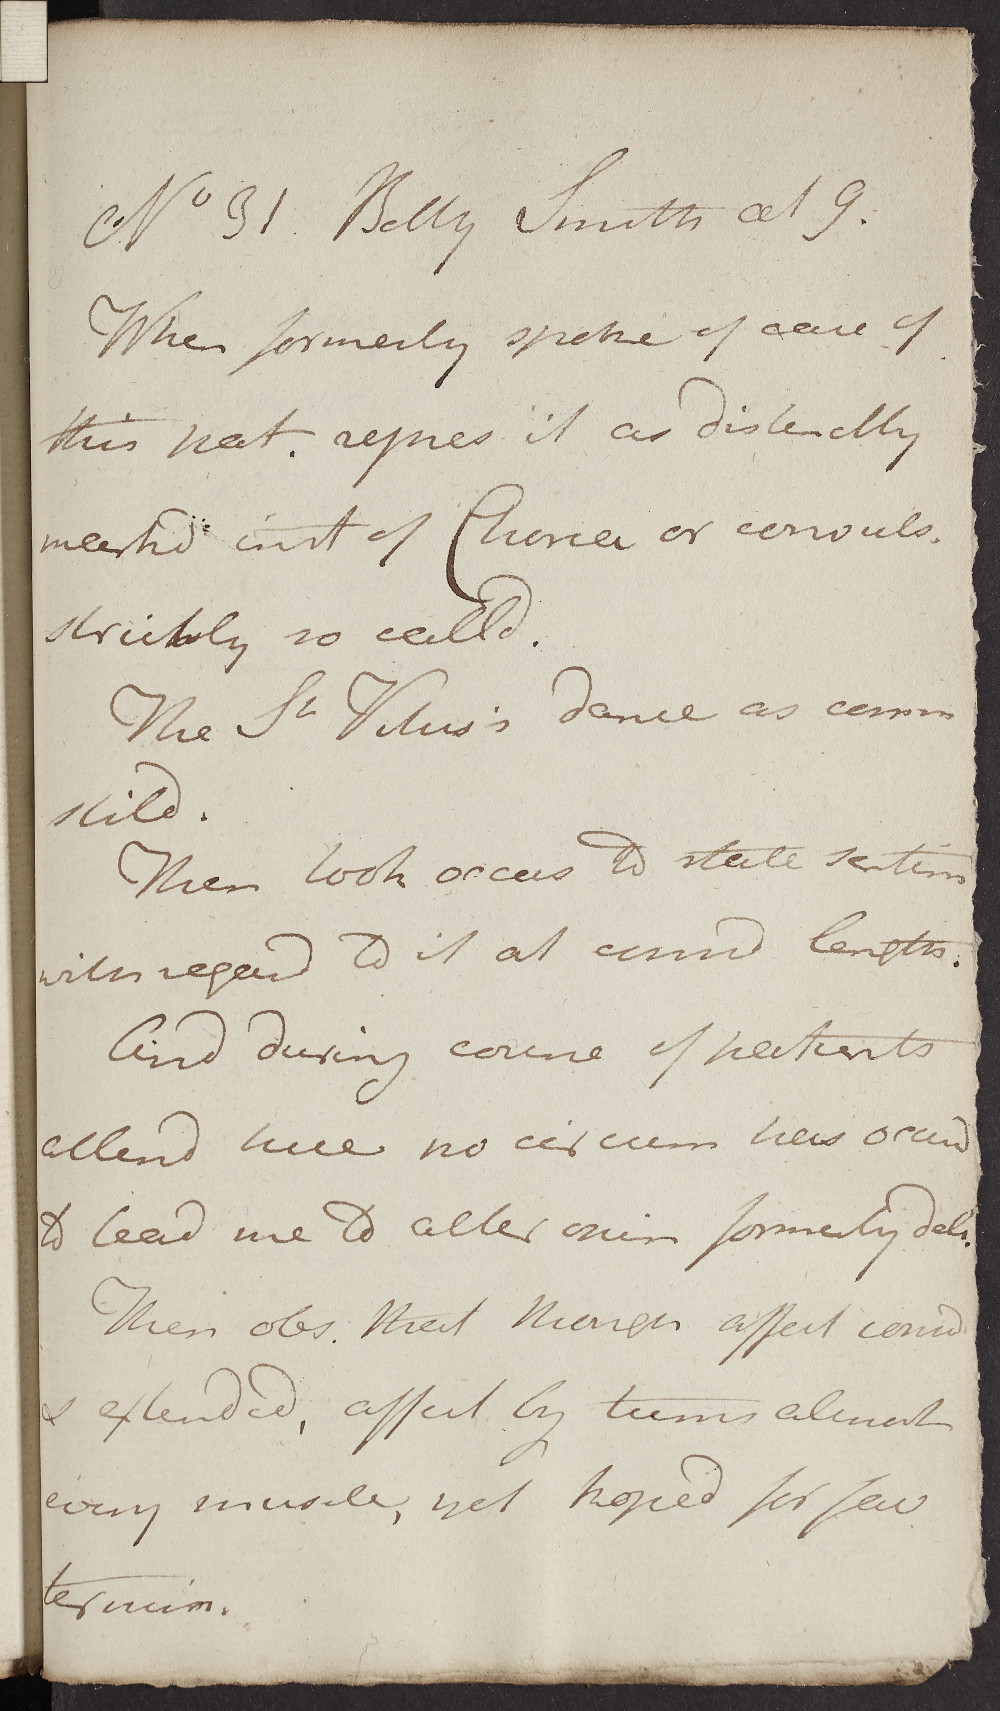 No 31. Betty Smith aet 9.
When formerly spoke of case of
this pat. repres it as distinctly
markd inst of Chorea or convuls.
strictly so calld.
The St Vitus's dance as comm
stild.
Then took occas to state sentim
with regard to it at consid length.
And during course of patients
attend here no circum has occurd
to lead me to alter opin formerly deli.
Then obs. that though affect consid
& extended, affect by turns almost
every muscle, yet hoped for fav
termin.